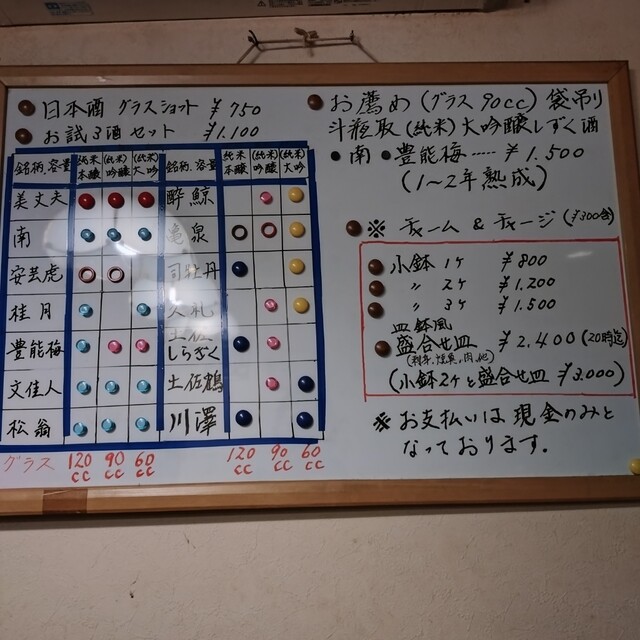 日本酒 グラスショット ¥750
お試3酒セット ¥1.100
銘柄.容量 純米 本醸 (純米) 吟醸 (純米) 大吟 銘柄.容量 純米 本醸 (純米) 吟醸 (純米) 大吟
美丈夫 酔鯨
南 亀泉
安芸虎 司牡丹
桂月 久礼
豊能梅 土佐しらぎく
文佳人 土佐鶴
松翁 川澤
グラス 120cc 90cc 60cc 120cc 90cc 60cc
お薦め(グラス90cc) 袋吊り
斗瓶取(純米)大吟醸しずく酒
・南 ・豊能梅 ····· ¥1.500
(1〜2年熟成)
※ チャーム & チャージ (¥300含)
小鉢 1ケ ¥800
〃 2ケ ¥1.200
〃 3ケ ¥1.500
皿鉢風
盛合せ皿 ¥2.400 (20時迄)
(小鉢2ケと盛合せ皿 ¥3.000)
※ お支払いは現金のみと
なっております.